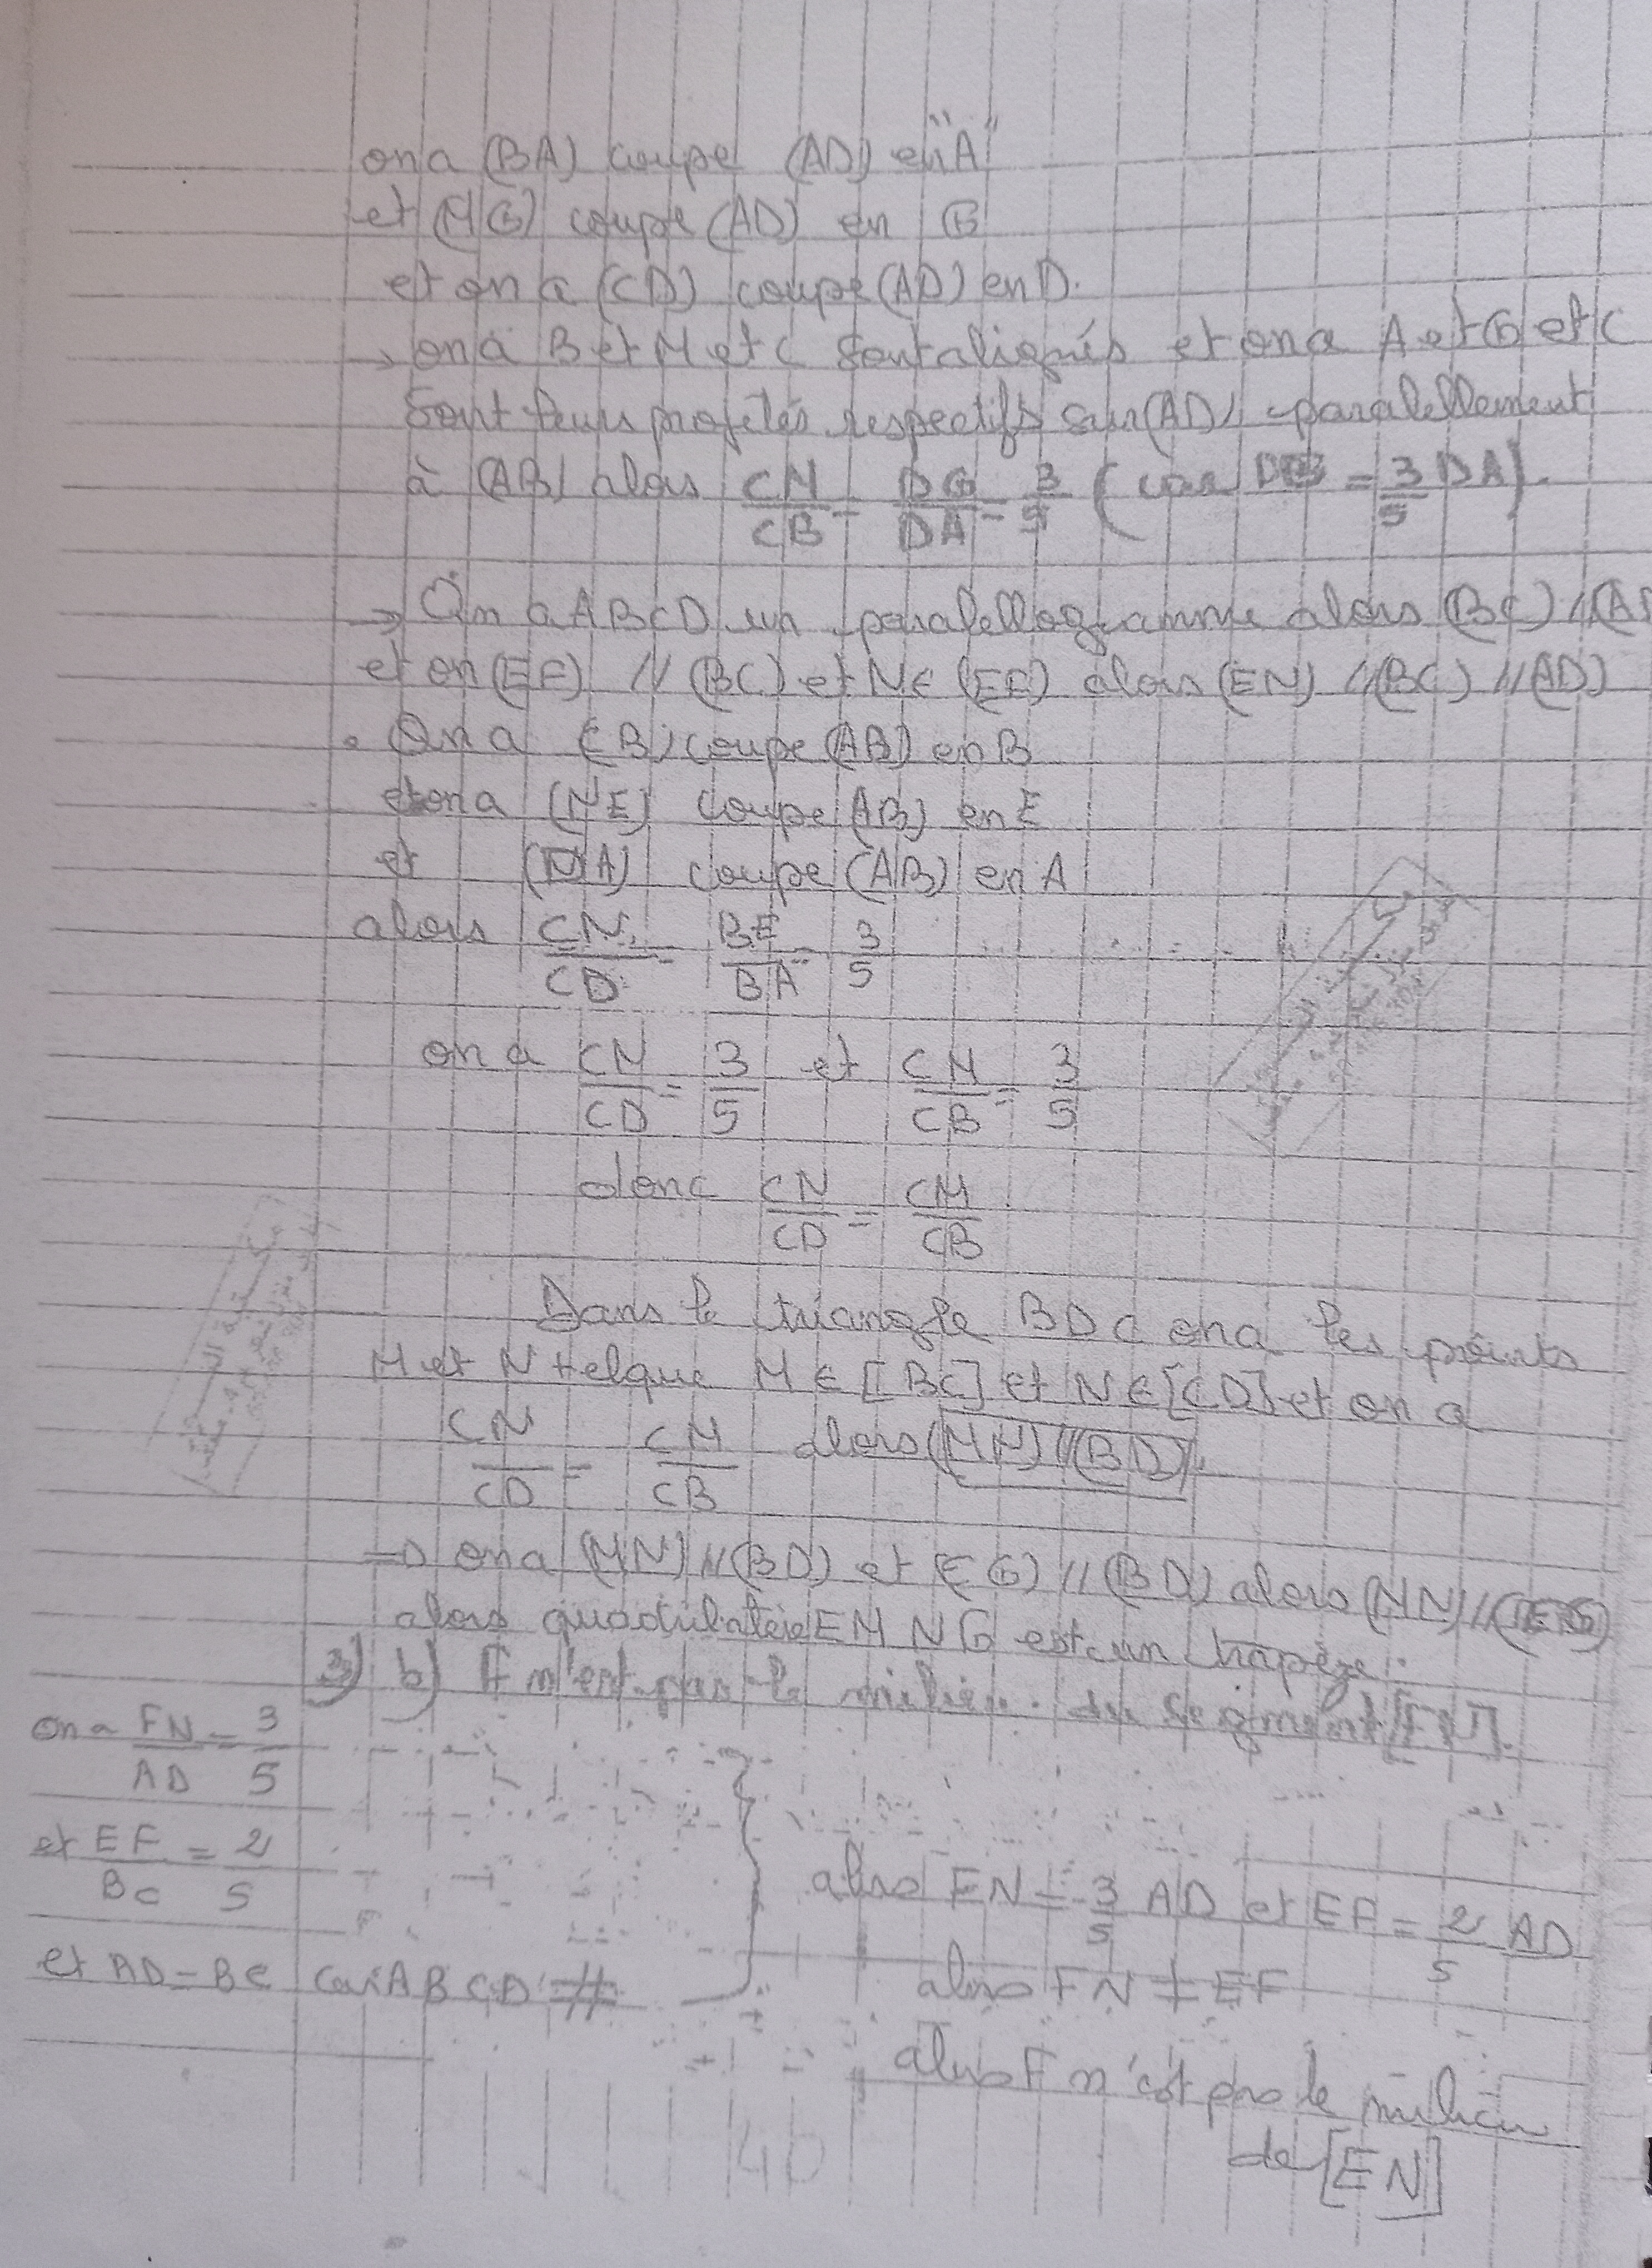 on a (BA) coupe (AD) en "A"
et (MG) coupe (AD) en G
et on a (CD) coupe (AD) en D.
→ on a B et M et C sont alignés et on a A et G et C
sont leurs projetés respectifs sur (AD) paralellement
à (AB) alors CM/CB = DG/DA = 3/5 (car DG = 3/5 DA).
→ On a ABCD un paralellogramme alors (BC) // (AD
et on (EF) // (BC) et N∈ (EF) alors (EN) // (BC) // (AD)
• On a (CB) coupe (AB) en B
et on a (NE) coupe (AB) en E
et (DA) coupe (AB) en A
alors CN/CD = BE/BA = 3/5
on a CN/CD = 3/5 et CM/CB = 3/5
donc CN/CD = CM/CB
Dans le triangle BDC on a les points
M et N telque M ∈ [BC] et N ∈ [CD] et on a
CN/CD = CM/CB alors (MN) // (BD).
⇒ on a (MN) // (BD) et (EG) // (BD) alors (MN) // (EG)
alors quadrilatère EMNG est un trapèze.
3) b) F n'est pas le milieu du segment [EN].
on a FN/AD = 3/5
et EF/BC = 2/5
alors FN = 3/5 AD et EF = 2/5 AD
et AD = BC car ABCD = //
alors FN ≠ EF
alors F n'est pas le milieu
de [EN]